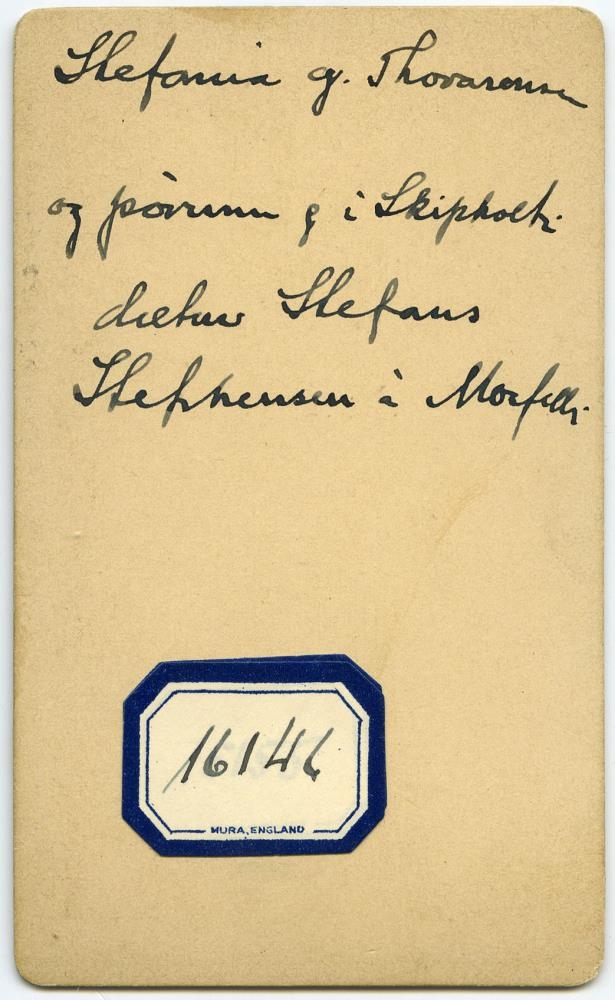 Stefania g. Thorarensen
og Þórunn g í Skipholti
dætur Stefáns
Stephensen á Mosfelli
16146
MURA, ENGLAND